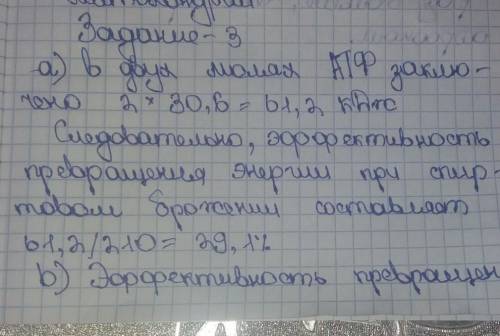 Задание-3
а) в двух молях АТФ заклю-
чено 2 * 30,6 = 61,2 кДж
Следовательно, эффективность
превращения энергии при спир-
товом брожении составляет
61,2/210 = 29,1%
b) Эффективность превращен